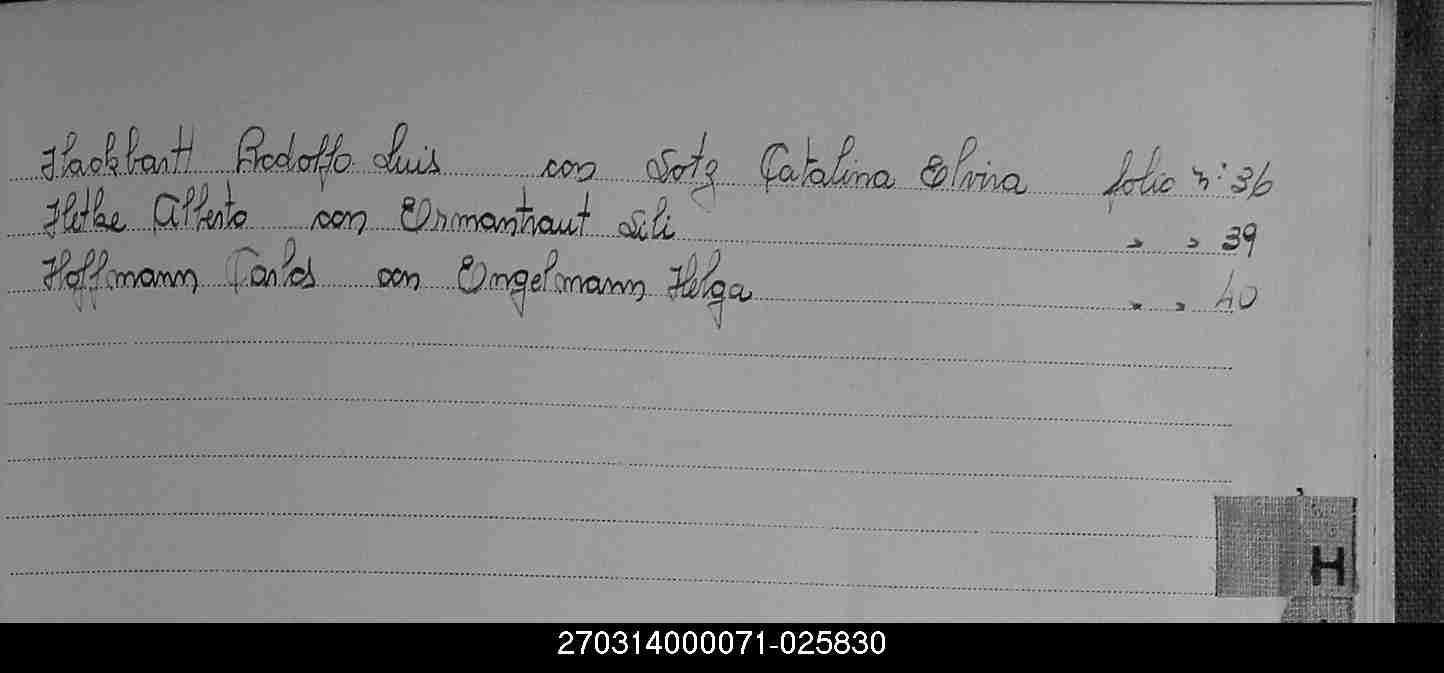 Hackbartt Rodolfo Luis con Sotz Catalina Elvira folio n: 36
Hetke Alberto con Ormantraut Lili " " 39
Hoffmann Carlos con Engelmann Helga " " 40
H
270314000071-025830